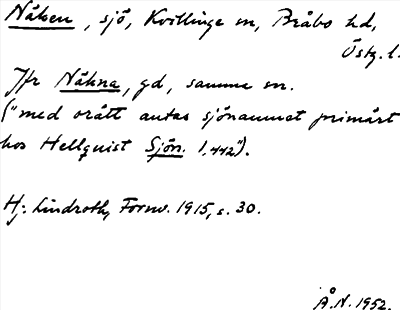 Näknen, sjö, Kvillinge sn, Bråbo hd,
Östg. l.
Jfr Näkna, gd, samma sn.
("med orätt antas sjönamnet primärt
hos Hellquist Sjön. 1,442").
Hj. Lindroth, Fornv. 1915, s. 30.
Å.N. 1952.